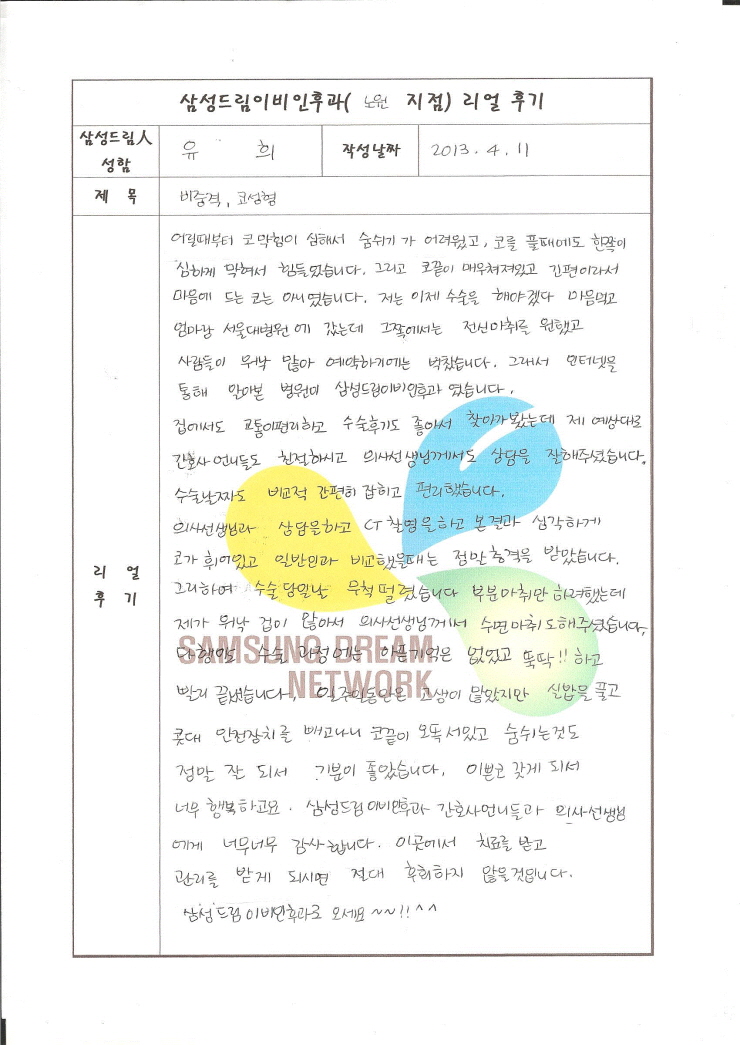 삼성드림이비인후과( 노원 지점) 리얼 후기
삼성드림人 성함 유 희 작성날짜 2013. 4. 11
제 목 비중격, 코성형
리 얼 후 기
어릴때부터 코막힘이 심해서 숨쉬기가 어려웠고, 코를 풀때에도 한쪽이
심하게 막혀서 힘들었습니다. 그리고 코끝이 매우쳐져있고 긴편이라서
마음에 드는 코는 아니였습니다. 저는 이제 수술을 해야겠다 마음먹고
엄마랑 서울대병원에 갔는데 그쪽에서는 전신마취를 원했고
사람들이 워낙 많아 예약하기에는 벅찼습니다. 그래서 인터넷을
통해 알아본 병원이 삼성드림이비인후과 였습니다.
집에서도 교통이편리하고 수술후기도 좋아서 찾아가봤는데 제 예상대로
간호사 언니들도 친절하시고 의사선생님께서도 상담을 잘해주셨습니다.
수술날짜도 비교적 간편히 잡히고 편리했습니다.
의사선생님과 상담을하고 CT 촬영을하고 본결과 심각하게
코가 휘어있고 일반인과 비교했을때는 정말충격을 받았습니다.
그리하여 수술당일날 무척떨렸습니다 부분마취만 하려했는데
제가 워낙 겁이 많아서 의사선생님께서 수면마취도해주셨습니다.
다행히 수술 과정에는 아픈기억은 없었고 뚝딱!! 하고
빨리 끝났습니다, 일주일동안은 고생이 많았지만 실밥을풀고
콧대 안전장치를 빼고나니 코끝이 오똑서있고 숨쉬는것도
정말 잘 되서 기분이 좋았습니다, 이쁜코 갖게 되서
너무 행복하고요. 삼성드림이비인후과 간호사언니들과 의사선생님
에게 너무너무 감사합니다. 이곳에서 치료를 받고
관리를 받게 되시면 절대 후회하지 않을것입니다.
삼성드림이비인후과로 오세요~~!!^^
SAMSUNG DREAM
NETWORK